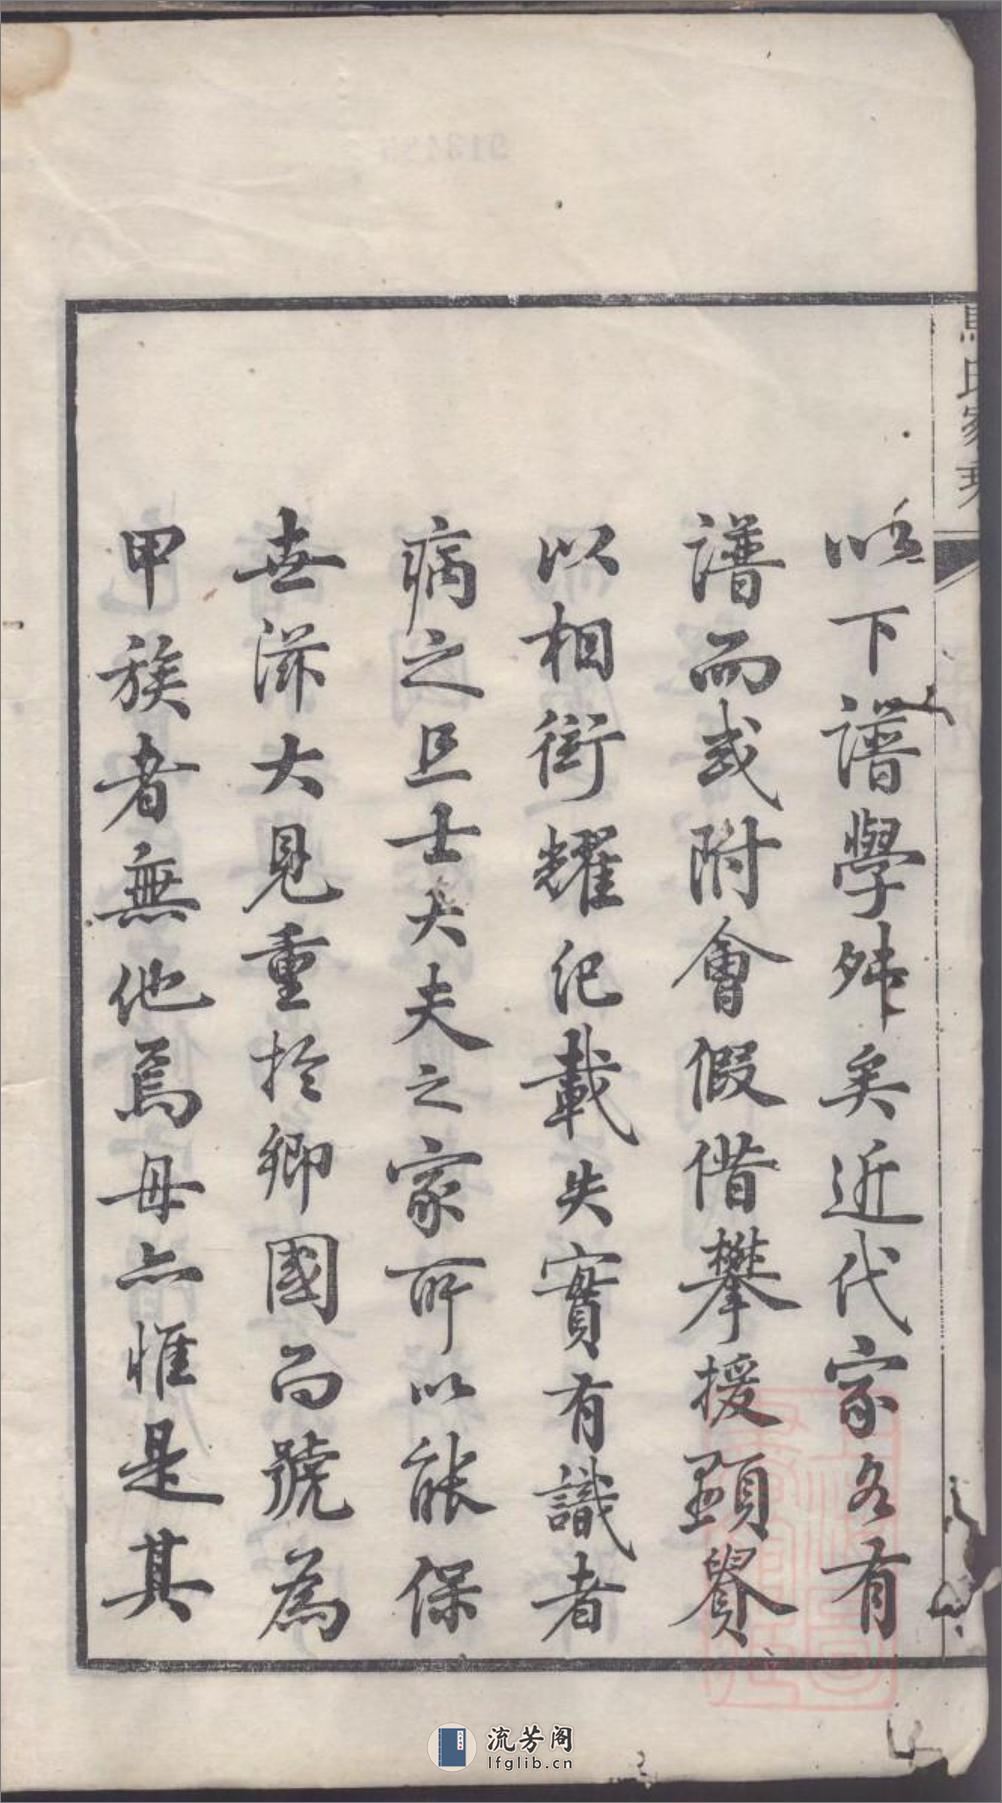 馬氏家乘
以下譜學舛矣近代家各有
譜而或附會假借攀援顯貴
以相衒耀紀載失實有識者
病之且士大夫之家所以能保
世滋大見重於鄉國而號為
甲族者無他焉毋亦惟是其
流芳阁
lfglib.cn